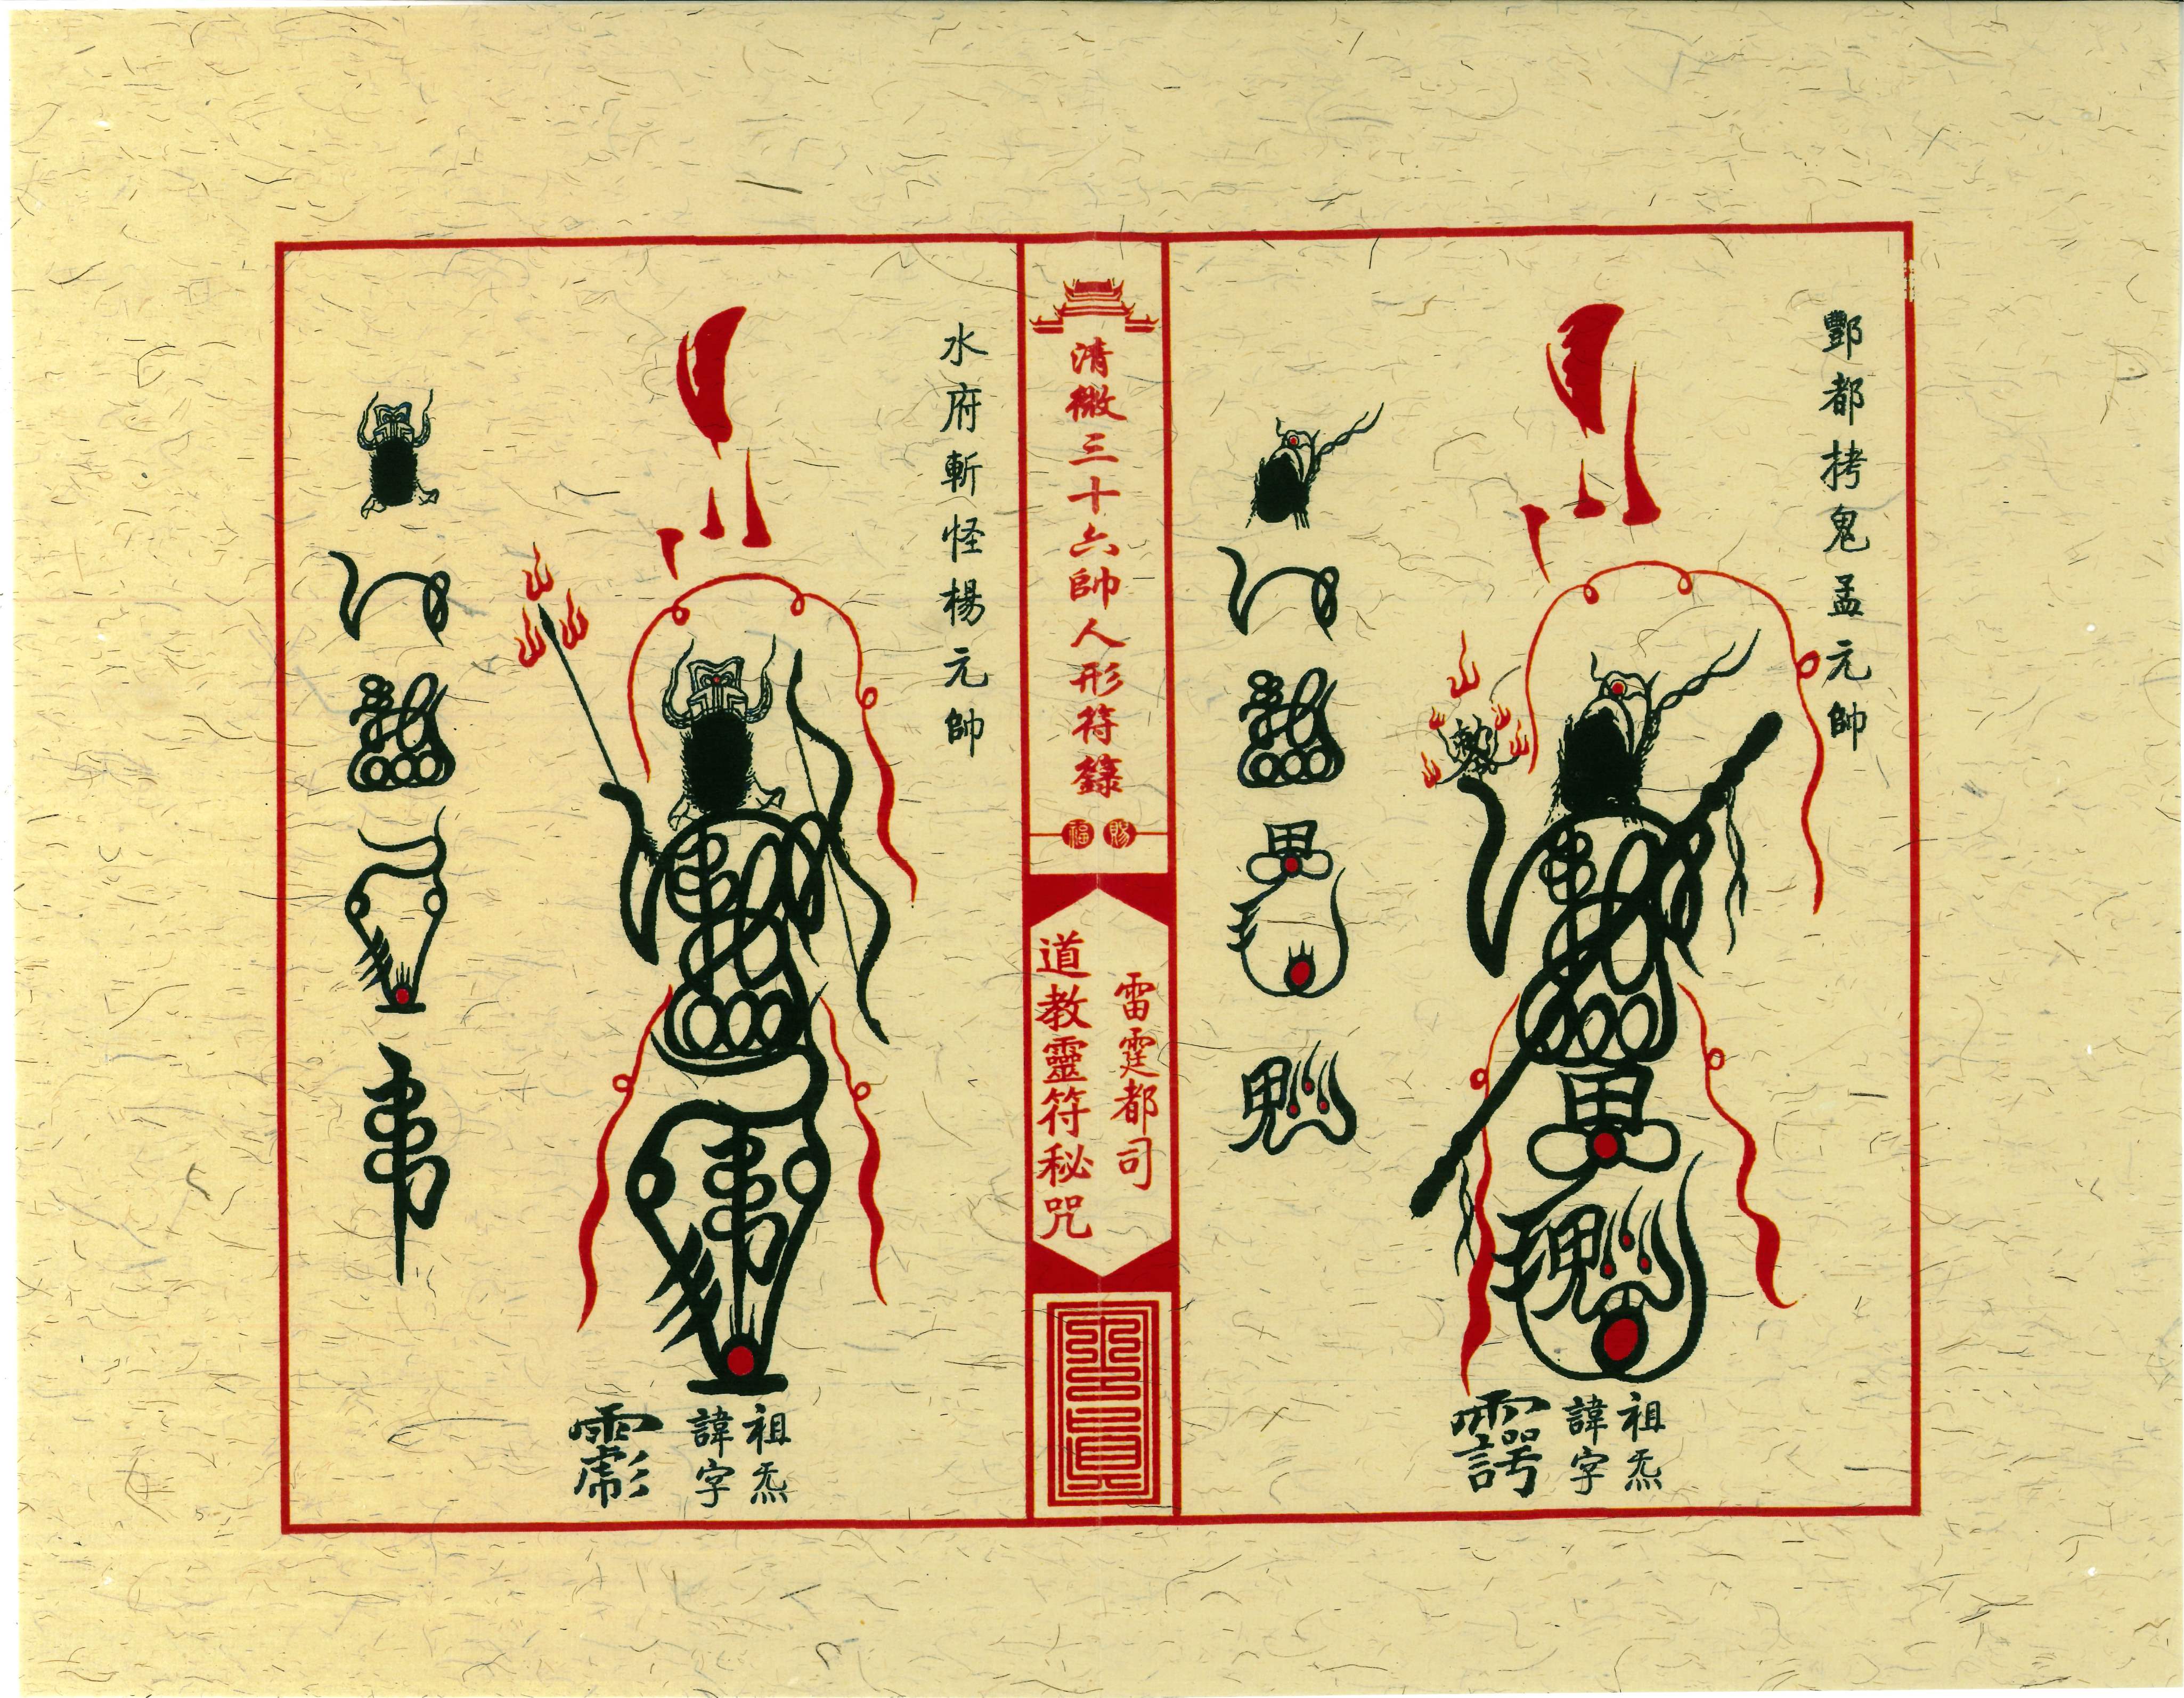 酆都拷鬼孟元帥
祖炁
諱字
清微三十六帥人形符籙
賜福
雷霆都司
道教靈符秘咒
水府斬怪楊元帥
祖炁
諱字